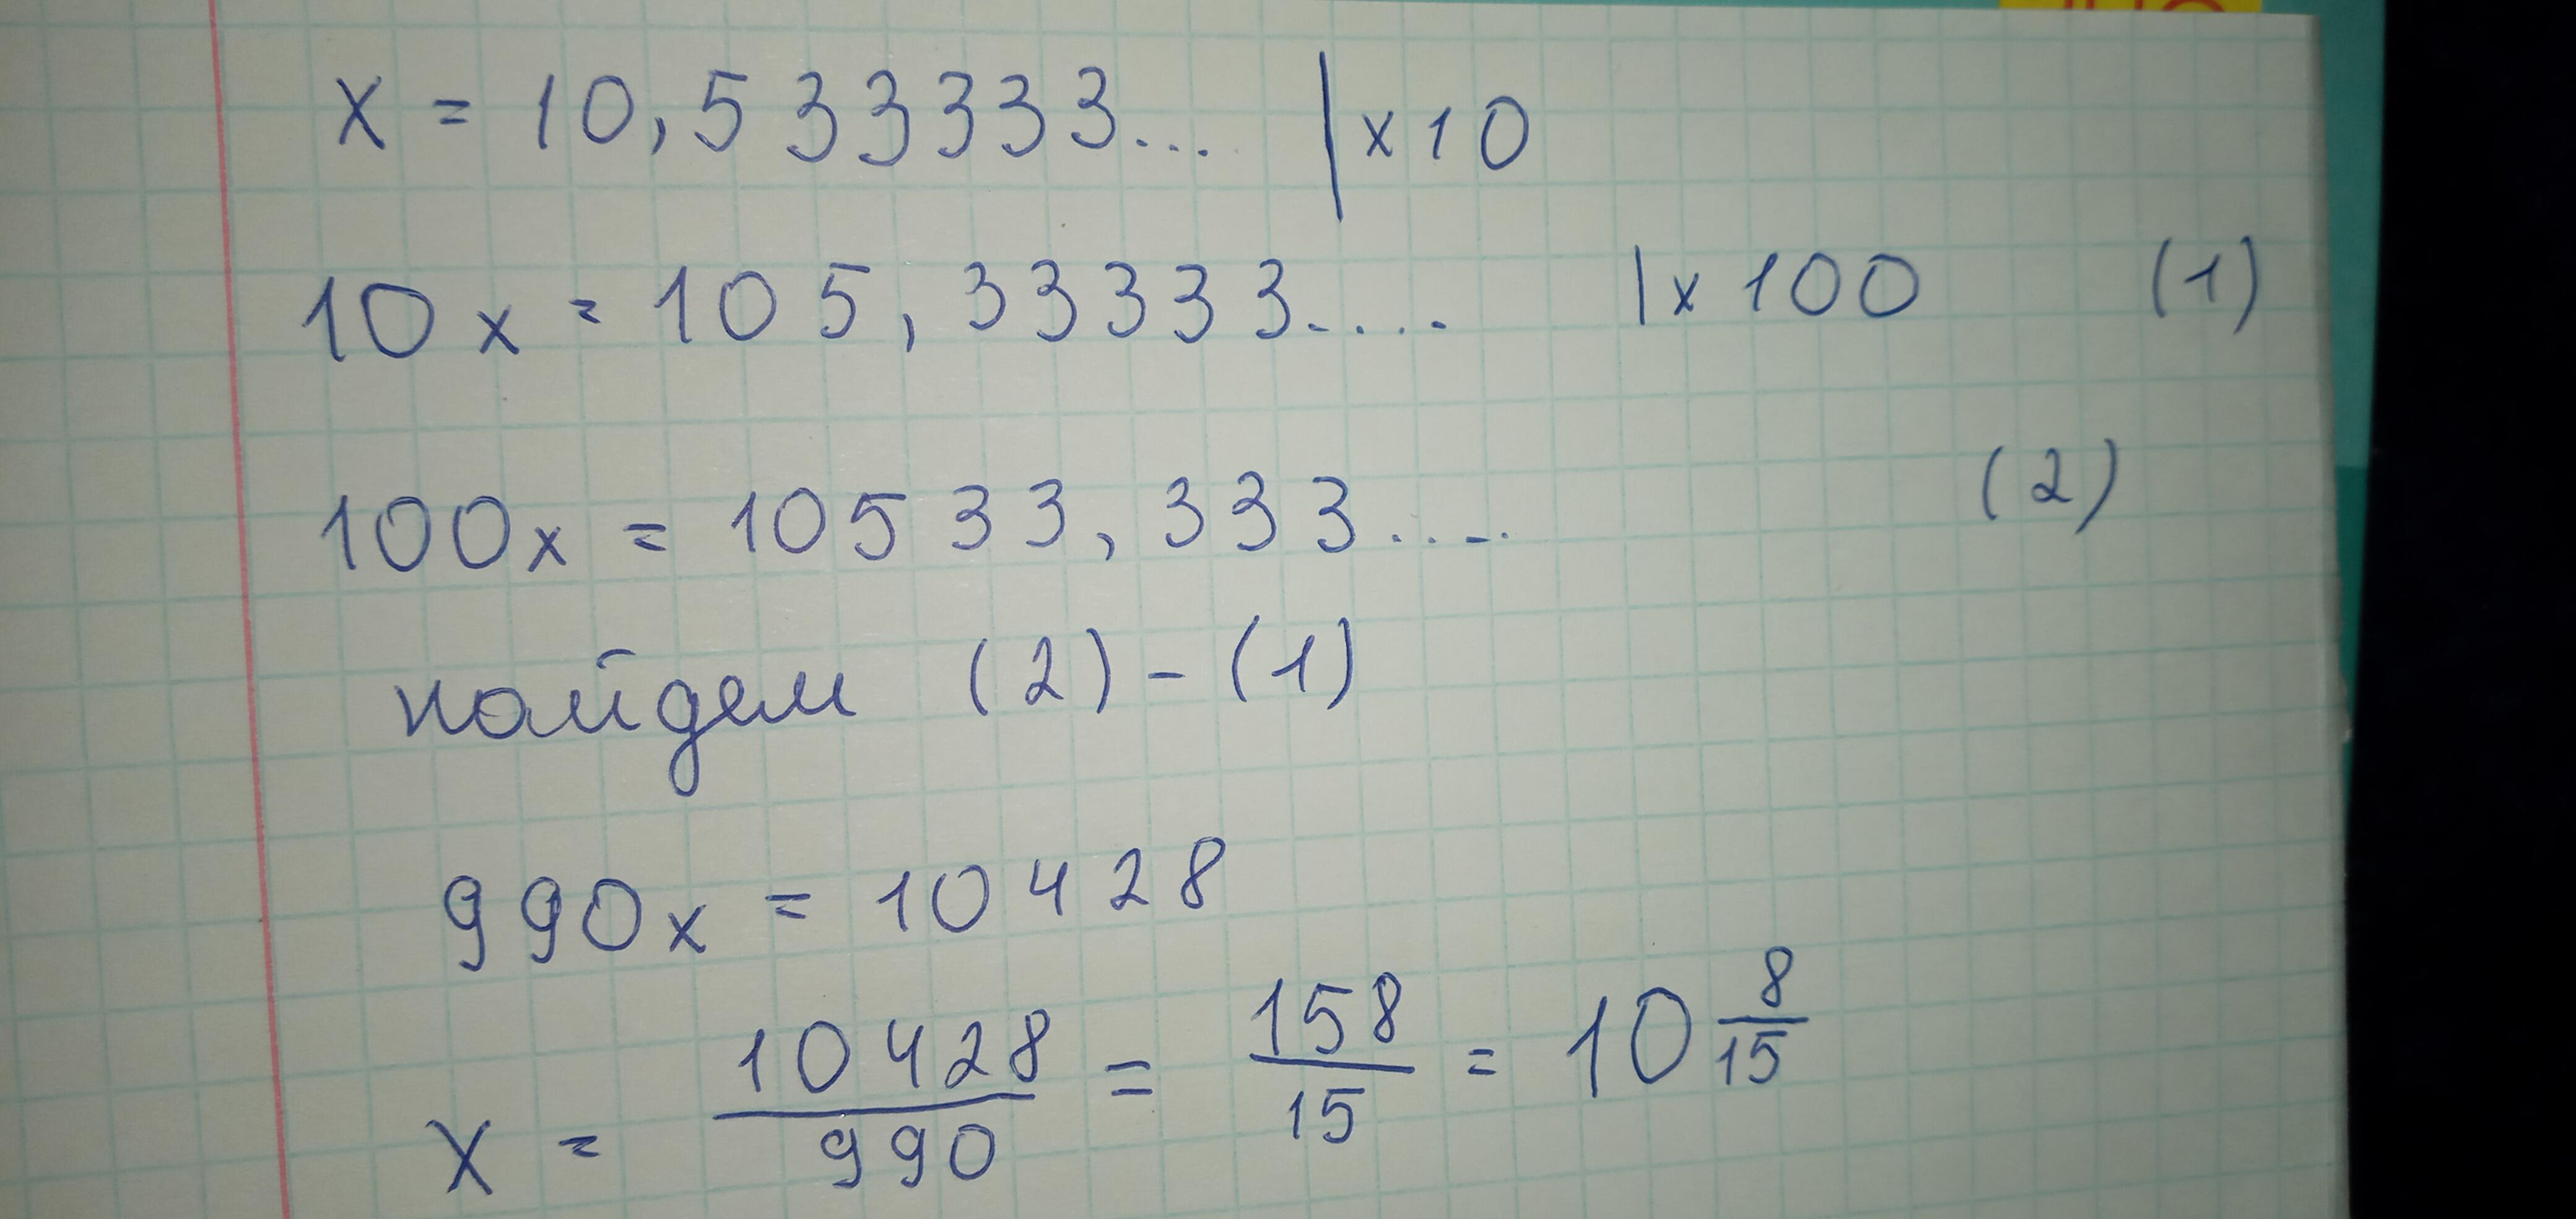 x = 10,533333... | x 10
10x = 105,33333.... | x 100 (1)
100x = 10533,333.... (2)
найдем (2) - (1)
990x = 10428
x = 10428/990 = 158/15 = 10 8/15